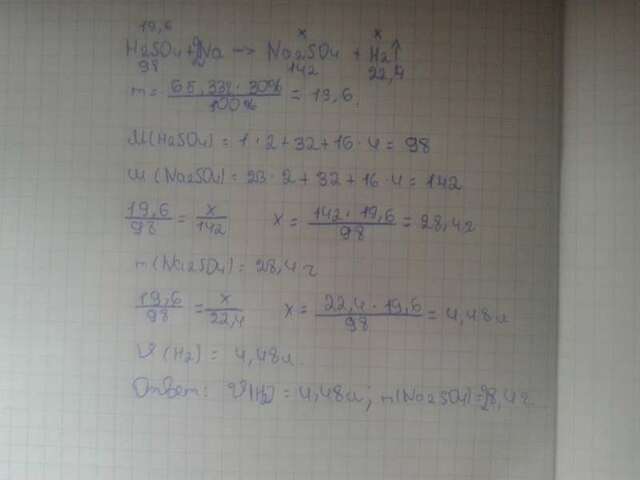 19,6 x x
H2SO4+2Na -> Na2SO4 + H2↑
98 142 22,4
m = 65,33г · 30% / 100% = 19,6.
M(H2SO4) = 1 · 2 + 32 + 16 · 4 = 98
M (Na2SO4) = 23 · 2 + 32 + 16 · 4 = 142
19,6/98 = x/142 x = 142 · 19,6 / 98 = 28,4г
m(Na2SO4) = 28,4 г
19,6/98 = x/22,4 x = 22,4 · 19,6 / 98 = 4,48л
V (H2) = 4,48л.
Ответ: V(H2) = 4,48л; m(Na2SO4)=28,4г